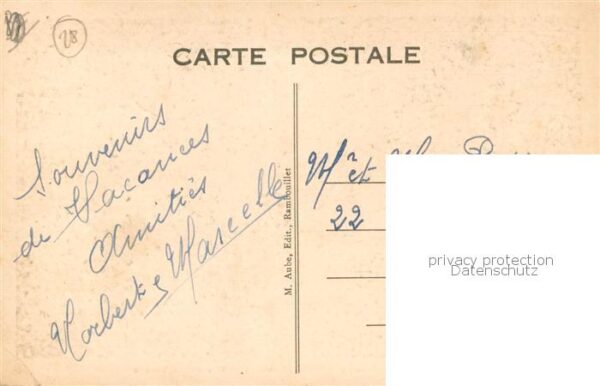 28
CARTE POSTALE
Souvenirs
de Vacances
Amitiés
Norbert & Marcelle
M. Aube, Edit., Rambouillet
Mr et
22
privacy protection
Datenschutz